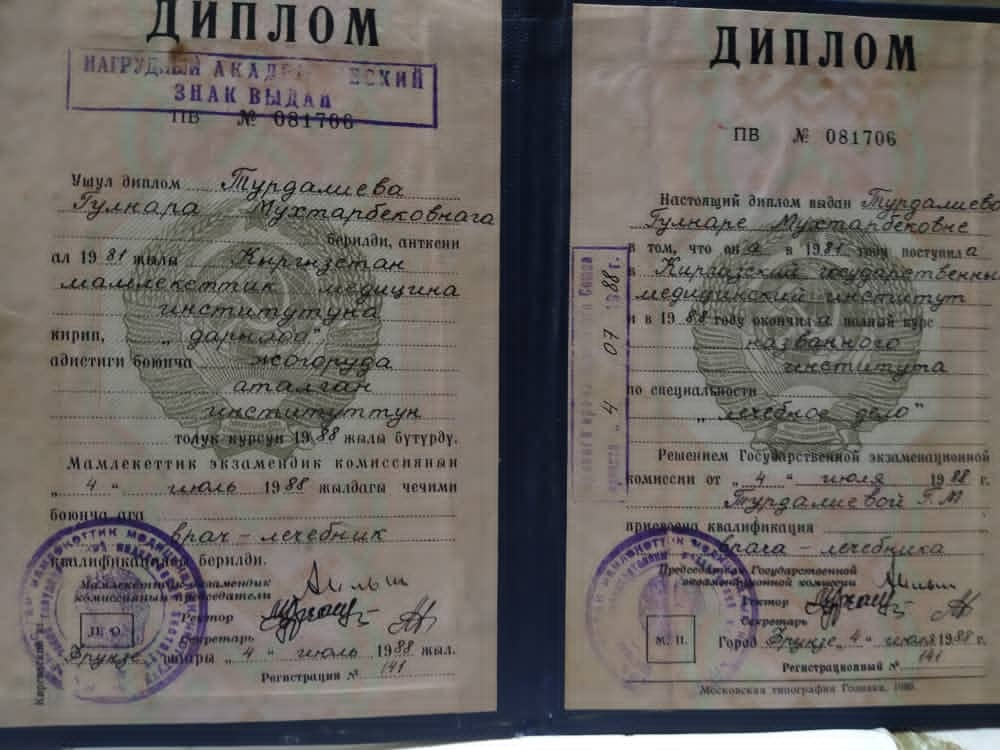 ДИПЛОМ
НАГРУДНЫЙ АКАДЕМИЧЕСКИЙ
ЗНАК ВЫДАН
ПВ № 081706
Ушул диплом Турдалиева
Гулнара Мухтарбековнага
берилди, анткени
ал 1981 жылы Кыргызстан
мамлекеттик медицина
институтуна
кирип, „дарылоо"
адистиги боюнча жогоруда
аталган
институттун
толук курсун 1988 жылы бүтүрдү.
Мамлекеттик экзамендик комиссиянын
„4" июль 1988 жылдагы чечими
боюнча ага
врач - лечебник
квалификациясы берилди.
Мамлекеттик экзамендик
комиссиянын председатели
Ректор
Секретарь
Фрунзе шаары „4" июль 1988 жыл.
Регистрация № 141
ДИПЛОМ
ПВ № 081706
Настоящий диплом выдан Турдалиевой
Гулнаре Мухтарбековне
в том, что она в 1981 году поступила
в Киргизский государственный
медицинский институт
и в 1988 году окончила полный курс
названного
института
по специальности
„лечебное дело"
Решением Государственной экзаменационной
комиссии от „4" июля 1988 г.
Турдалиевой Г.М
присвоена квалификация
врача - лечебника
Председатель Государственной
экзаменационной комиссии
Ректор
Секретарь
М. П.
Город Фрунзе „4" июля 1988 г.
Регистрационный № 141
Московская типография Гознака.
4 07 1988 г.